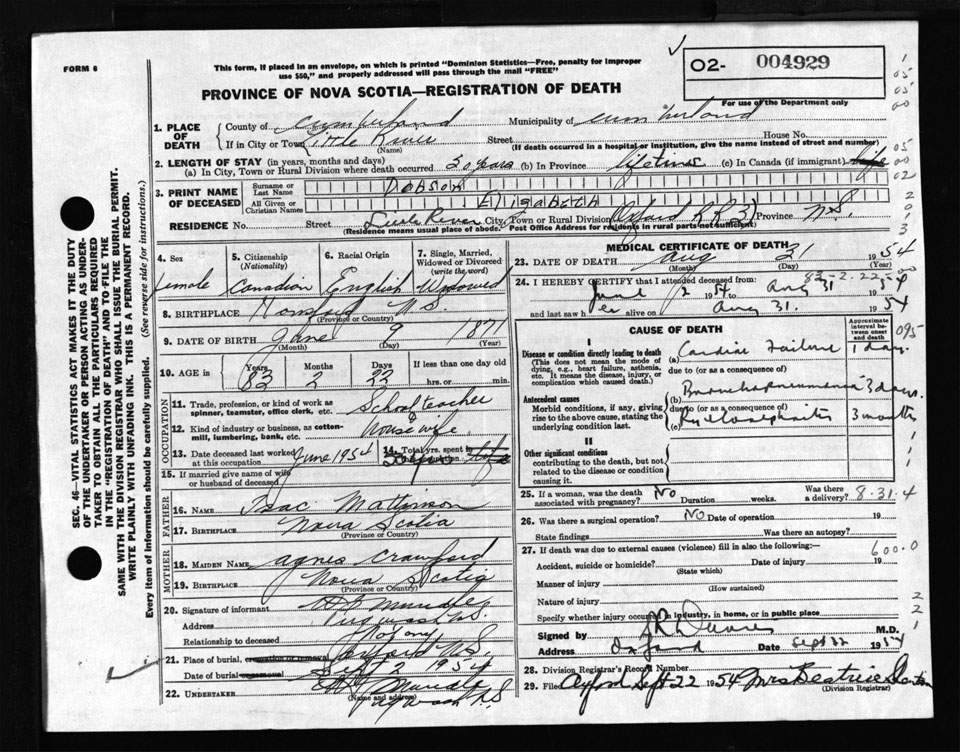 FORM 6
This form, if placed in an envelope, on which is printed "Dominion Statistics—Free, penalty for improper
use $50," and properly addressed will pass through the mail "FREE"
PROVINCE OF NOVA SCOTIA—REGISTRATION OF DEATH
O2- 004929
For use of the Department only
1. PLACE OF DEATH
County of Cumberland Municipality of Cumberland
If in City or Town Little River Street House No.
(Name) (If death occurred in a hospital or institution, give the name instead of street and number)
2. LENGTH OF STAY (in years, months and days)
(a) In City, Town or Rural Division where death occurred 50 years (b) In Province lifetime (c) In Canada (if immigrant) life
3. PRINT NAME OF DECEASED
Surname or Last Name Dobson
All Given or Christian Names Elizabeth
RESIDENCE No. Street Little River City, Town or Rural Division (Oxford RR 3) Province N.S.
(Residence means usual place of abode. Post Office Address for residents in rural parts not sufficient)
4. Sex
Female
5. Citizenship
(Nationality)
Canadian
6. Racial Origin
English
7. Single, Married,
Widowed or Divorced
(write the word)
Widowed
8. BIRTHPLACE N.S.
(Province or Country)
9. DATE OF BIRTH June 9 1871
(Month) (Day) (Year)
10. AGE in Years Months Days If less than one day old
83 2 22 hrs. or min.
OCCUPATION
11. Trade, profession, or kind of work as
spinner, teamster, office clerk, etc. School teacher
12. Kind of industry or business, as cotton-
mill, lumbering, bank, etc. housewife
13. Date deceased last worked
at this occupation June 1954
14. Total yrs. spent in
life
15. If married give name of wife
or husband of deceased
FATHER
16. Name Isac Mattinson
17. BIRTHPLACE Nova Scotia
(Province or Country)
MOTHER
18. MAIDEN NAME Agnes Crawford
19. BIRTHPLACE Nova Scotia
(Province or Country)
20. Signature of informant
Address Pugwash N.S.
Relationship to deceased
21. Place of burial, cremation or removal Oxford N.S.
Date of burial Sept 2 1954
22. UNDERTAKER
(Name and address)
Pugwash N.S.
MEDICAL CERTIFICATE OF DEATH
23. DATE OF DEATH Aug 31 1954
(Month) (Day) (Year)
83-2-22-00
24. I HEREBY CERTIFY that I attended deceased from:
June 12 1954 to Aug 31 1954
and last saw her alive on Aug 31. 1954
CAUSE OF DEATH
Approximate interval between onset and death
095
I
Disease or condition directly leading to death
(This does not mean the mode of
dying, e.g., heart failure, asthenia,
etc. It means the disease, injury, or
complication which caused death.)
(a) Cardiac Failure 1 day.
due to (or as a consequence of)
Antecedent causes
Morbid conditions, if any, giving
rise to the above cause, stating the
underlying condition last.
Bronchopneumonia 3 days.
due to (or as a consequence of)
(c) 3 months
II
Other significant conditions
contributing to the death, but not
related to the disease or condition
causing it.
25. If a woman, was the death
associated with pregnancy? No Duration weeks. Was there
a delivery?
8-31-4
26. Was there a surgical operation? No Date of operation 19
State findings Was there an autopsy?
27. If death was due to external causes (violence) fill in also the following:—
600.0
Accident, suicide or homicide? Date of injury 19
(State which)
Manner of injury
(How sustained)
Nature of injury
Specify whether injury occurred in industry, in home, or in public place
Signed by M.D.
Address Oxford Date Sept 22 1954
28. Division Registrar's Record Number
29. Filed Oxford Sept 22 1954 Mrs Beatrice
(Division Registrar)
SEC. 46—VITAL STATISTICS ACT MAKES IT THE DUTY
OF THE UNDERTAKER OR PERSON ACTING AS UNDER-
TAKER TO OBTAIN ALL THE PARTICULARS REQUIRED
IN THE "REGISTRATION OF DEATH" AND TO FILE THE
SAME WITH THE DIVISION REGISTRAR WHO SHALL ISSUE THE BURIAL PERMIT.
WRITE PLAINLY WITH UNFADING INK. THIS IS A PERMANENT RECORD.
Every item of information should be carefully supplied. (See reverse side for instructions.)